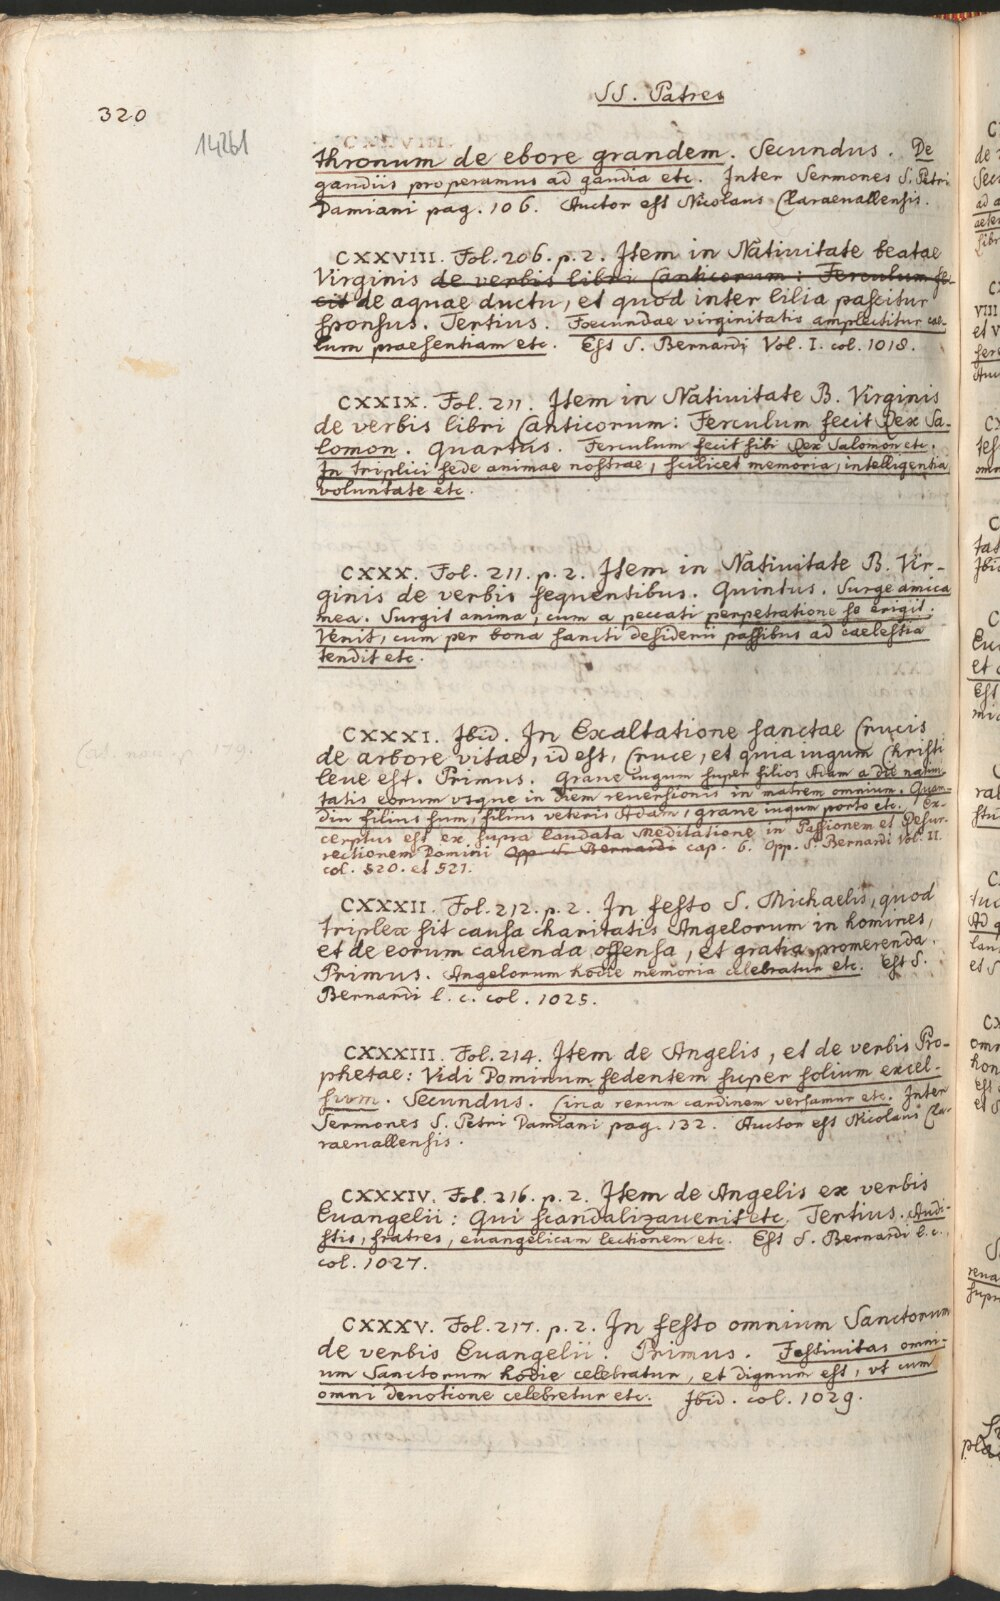 SS. Patres
320
14261
thronum de ebore grandem. Secundus. De
gaudiis properamus ad gaudia etc. Inter Sermones S. Petri
Damiani pag. 106. Auctor est Nicolaus Claraevallensis.
CXXVIII. Fol. 206. p. 2. Item in Nativitate beatae
Virginis de verbis libri Canticorum: Ferculum fe-
cit de aquae ductu, et quod inter lilia pascitur
sponsus. Tertius. Foecundae virginitatis amplectitur cae-
lum praesentiam etc. Est S. Bernardi Vol. I. col. 1018.
CXXIX. Fol. 211. Item in Natiuitate B. Virginis
de verbis libri Canticorum: Ferculum fecit Rex Sa-
lomon. Quartus. Ferculum fecit sibi Rex Salomon etc.
In triplici sede animae nostrae, scilicet memoria, intelligentia,
voluntate etc.
CXXX. Fol. 211. p. 2. Item in Natiuitate B. Vir-
ginis de verbis sequentibus. Quintus. Surge amica
mea. Surgit anima, cum a peccati perpetratione se erigit.
Venit, cum per bona sancti desiderii passibus ad caelestia
tendit etc.
CXXXI. Ibid. In Exaltatione sanctae Crucis
de arbore vitae, id est, Cruce, et quia iugum Christi
leue est. Primus. Graue iugum super filios Adam a die natiui-
tatis eorum vsque in diem reuersionis in matrem omnium. Quam-
diu filius sum, filius veteris Adam, graue iugum porto etc. Ex-
cerptus est ex supra laudata Meditatione in Passionem et Resur-
rectionem Domini Opp. S. Bernardi cap. 6. Opp. S. Bernardi Vol. II.
col. 520. et 521.
CXXXII. Fol. 212. p. 2. In festo S. Michaelis, quod
triplex sit causa charitatis Angelorum in homines,
et de eorum cauenda offensa, et gratia promerenda.
Primus. Angelorum hodie memoria celebratur etc. Est S.
Bernardi l. c. col. 1025.
CXXXIII. Fol. 214. Item de Angelis, et de verbis Pro-
phetae: Vidi Dominum sedentem super solium excel-
sum. Secundus. Circa rerum cardinem versamur etc. Inter
Sermones S. Petri Damiani pag. 132. Auctor est Nicolaus Cla-
raevallensis.
CXXXIV. Fol. 216. p. 2. Item de Angelis ex verbis
Euangelii: Qui scandalizauerit etc. Tertius. Audi-
stis, fratres, euangelicam lectionem etc. Est S. Bernardi l. c.
col. 1027.
CXXXV. Fol. 217. p. 2. In festo omnium Sanctorum
de verbis Euangelii. Primus. Festiuitas omni-
um Sanctorum hodie celebratur, et dignum est, vt cum
omni deuotione celebretur etc. Ibid. col. 1029.